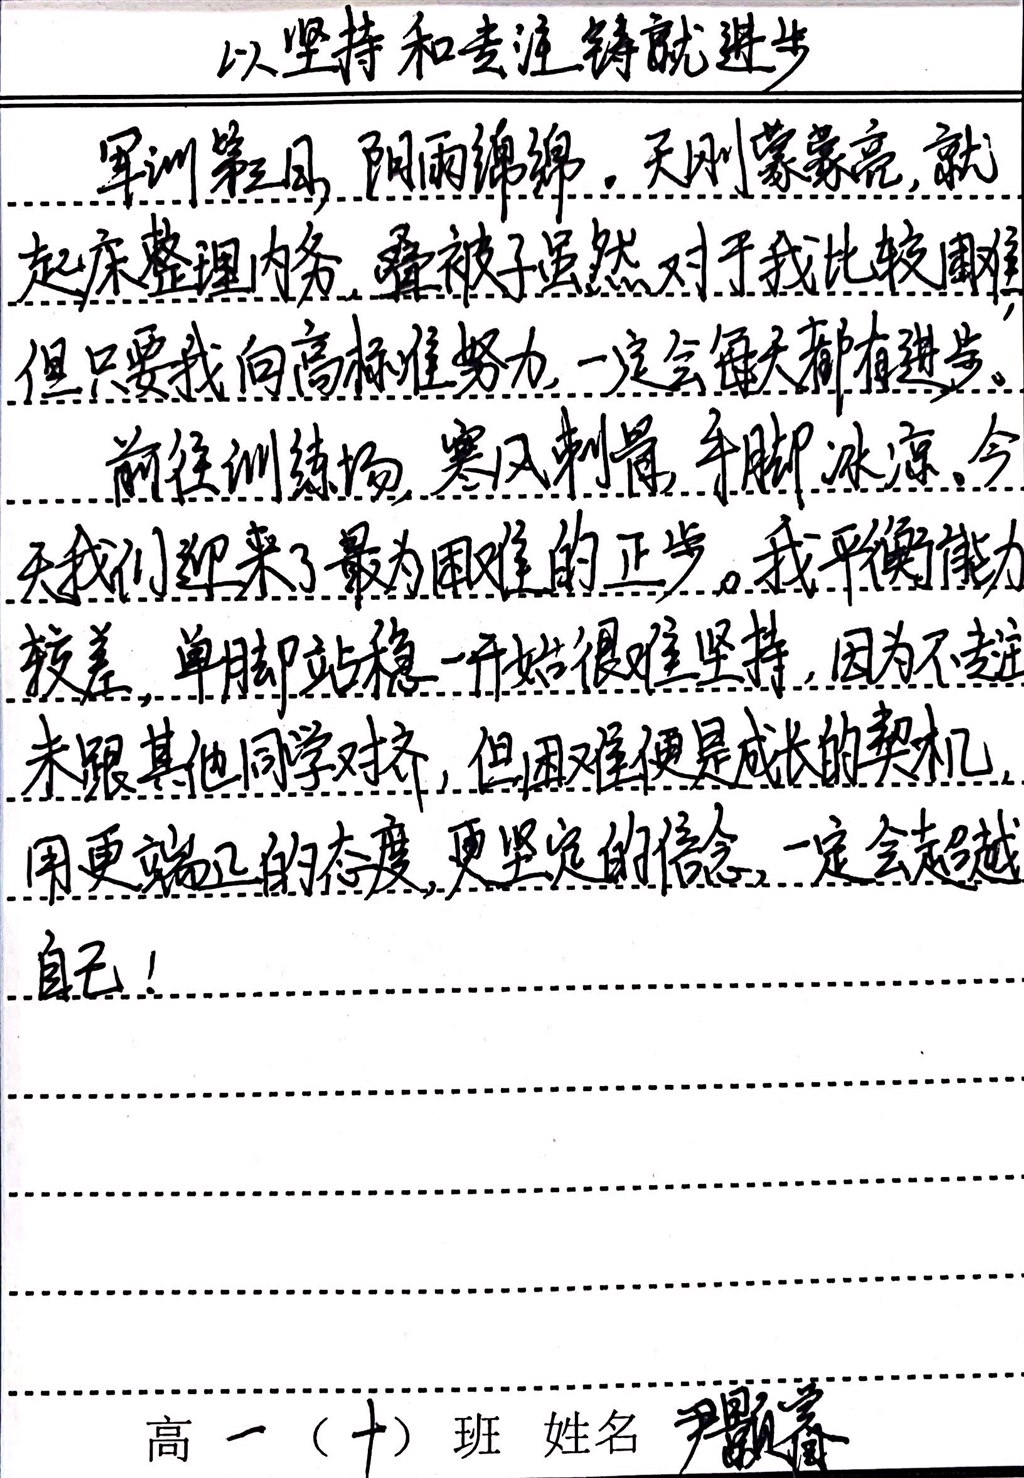 以坚持和专注铸就进步
军训第三日，阴雨绵绵。天刚蒙蒙亮，就
起床整理内务，叠被子虽然对于我比较困难，
但只要我向高标准努力，一定会每天都有进步。
前往训练场，寒风刺骨，手脚冰凉。今
天我们迎来了最为困难的正步。我平衡能力
较差，单脚站稳一开始很难坚持，因为不专注
未跟其他同学对齐，但困难便是成长的契机，
用更端正的态度，更坚定的信念，一定会超越
自己！
高一（十）班 姓名 尹颢